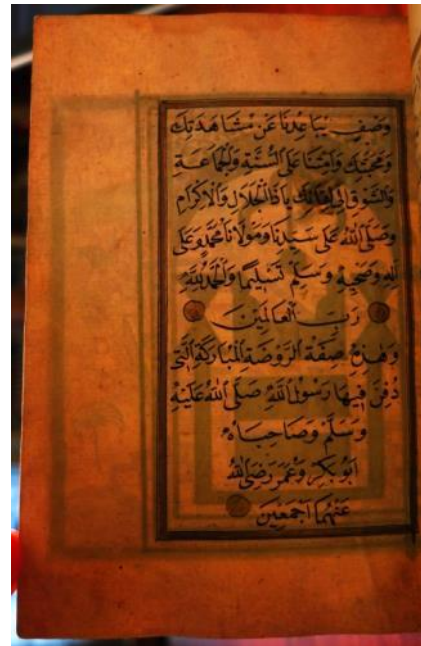 وَصْفٍ يُبَاعِدُنَا عَنْ مُشَاهَدَتِكَ
وَمَحَبَّتِكَ وَاَمِتْنَا عَلَى السُّنَّةِ وَالْجَمَاعَةِ
وَالشَّوْقِ اِلَى لِقَائِكَ يَاذَا الْجَلَالِ وَالْاِكْرَامِ
وَصَلَّى اللهُ عَلَى سَيِّدِنَا وَمَوْلَانَا مُحَمَّدٍ وَعَلَى
اٰلِهِ وَصَحْبِهِ وَسَلِّمْ تَسْلِيمًا وَالْحَمْدُ لِلّٰهِ
رَبِّ الْعَالَمِينَ
وَهٰذِهِ صِفَةُ الرَّوْضَةِ الْمُبَارَكَةِ الَّتِى
دُفِنَ فِيهَا رَسُولُ اللهِ صَلَّى اللهُ عَلَيْهِ
وَسَلَّمَ وَصَاحِبَاهُ
اَبُو بَكْرٍ وَعُمَرَ رَضِىَ اللهُ
عَنْهُمَا اَجْمَعِينَ